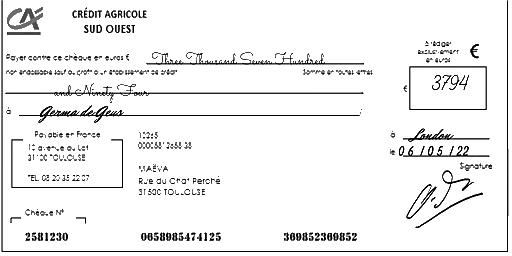 CRÉDIT AGRICOLE
SUD OUEST
Payer contre ce chèque en euros € Three Thousand Seven Hundred
non endossable sauf au profit d'un établissement de crédit Somme en toutes lettres
and Ninety Four
à Germa de Geus
à rédiger
exclusivement
en euros
€
€ 3794
Payable en France
10 avenue du Lot
31100 TOULOUSE
TEL. 08 20 35 22 07
10265
00005812658 38
MAËVA
Rue du Chat Perché
31500 TOULOUSE
à London
le 06/05/22
Signature
Chèque N°
2581230 0658985474125 369852369852